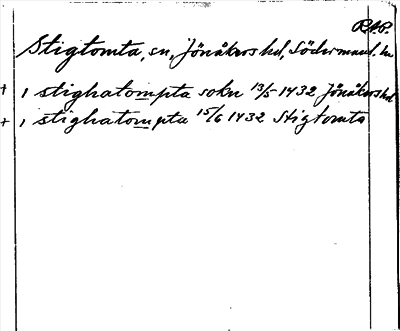 RAP.
Stigtomta, sn, Jönåkers hd, Södermanl. ln
+ i stighatompta sokn 13/5 1432 Jönåkers hd
+ i stighatompta 15/6 1432 Stigtomta